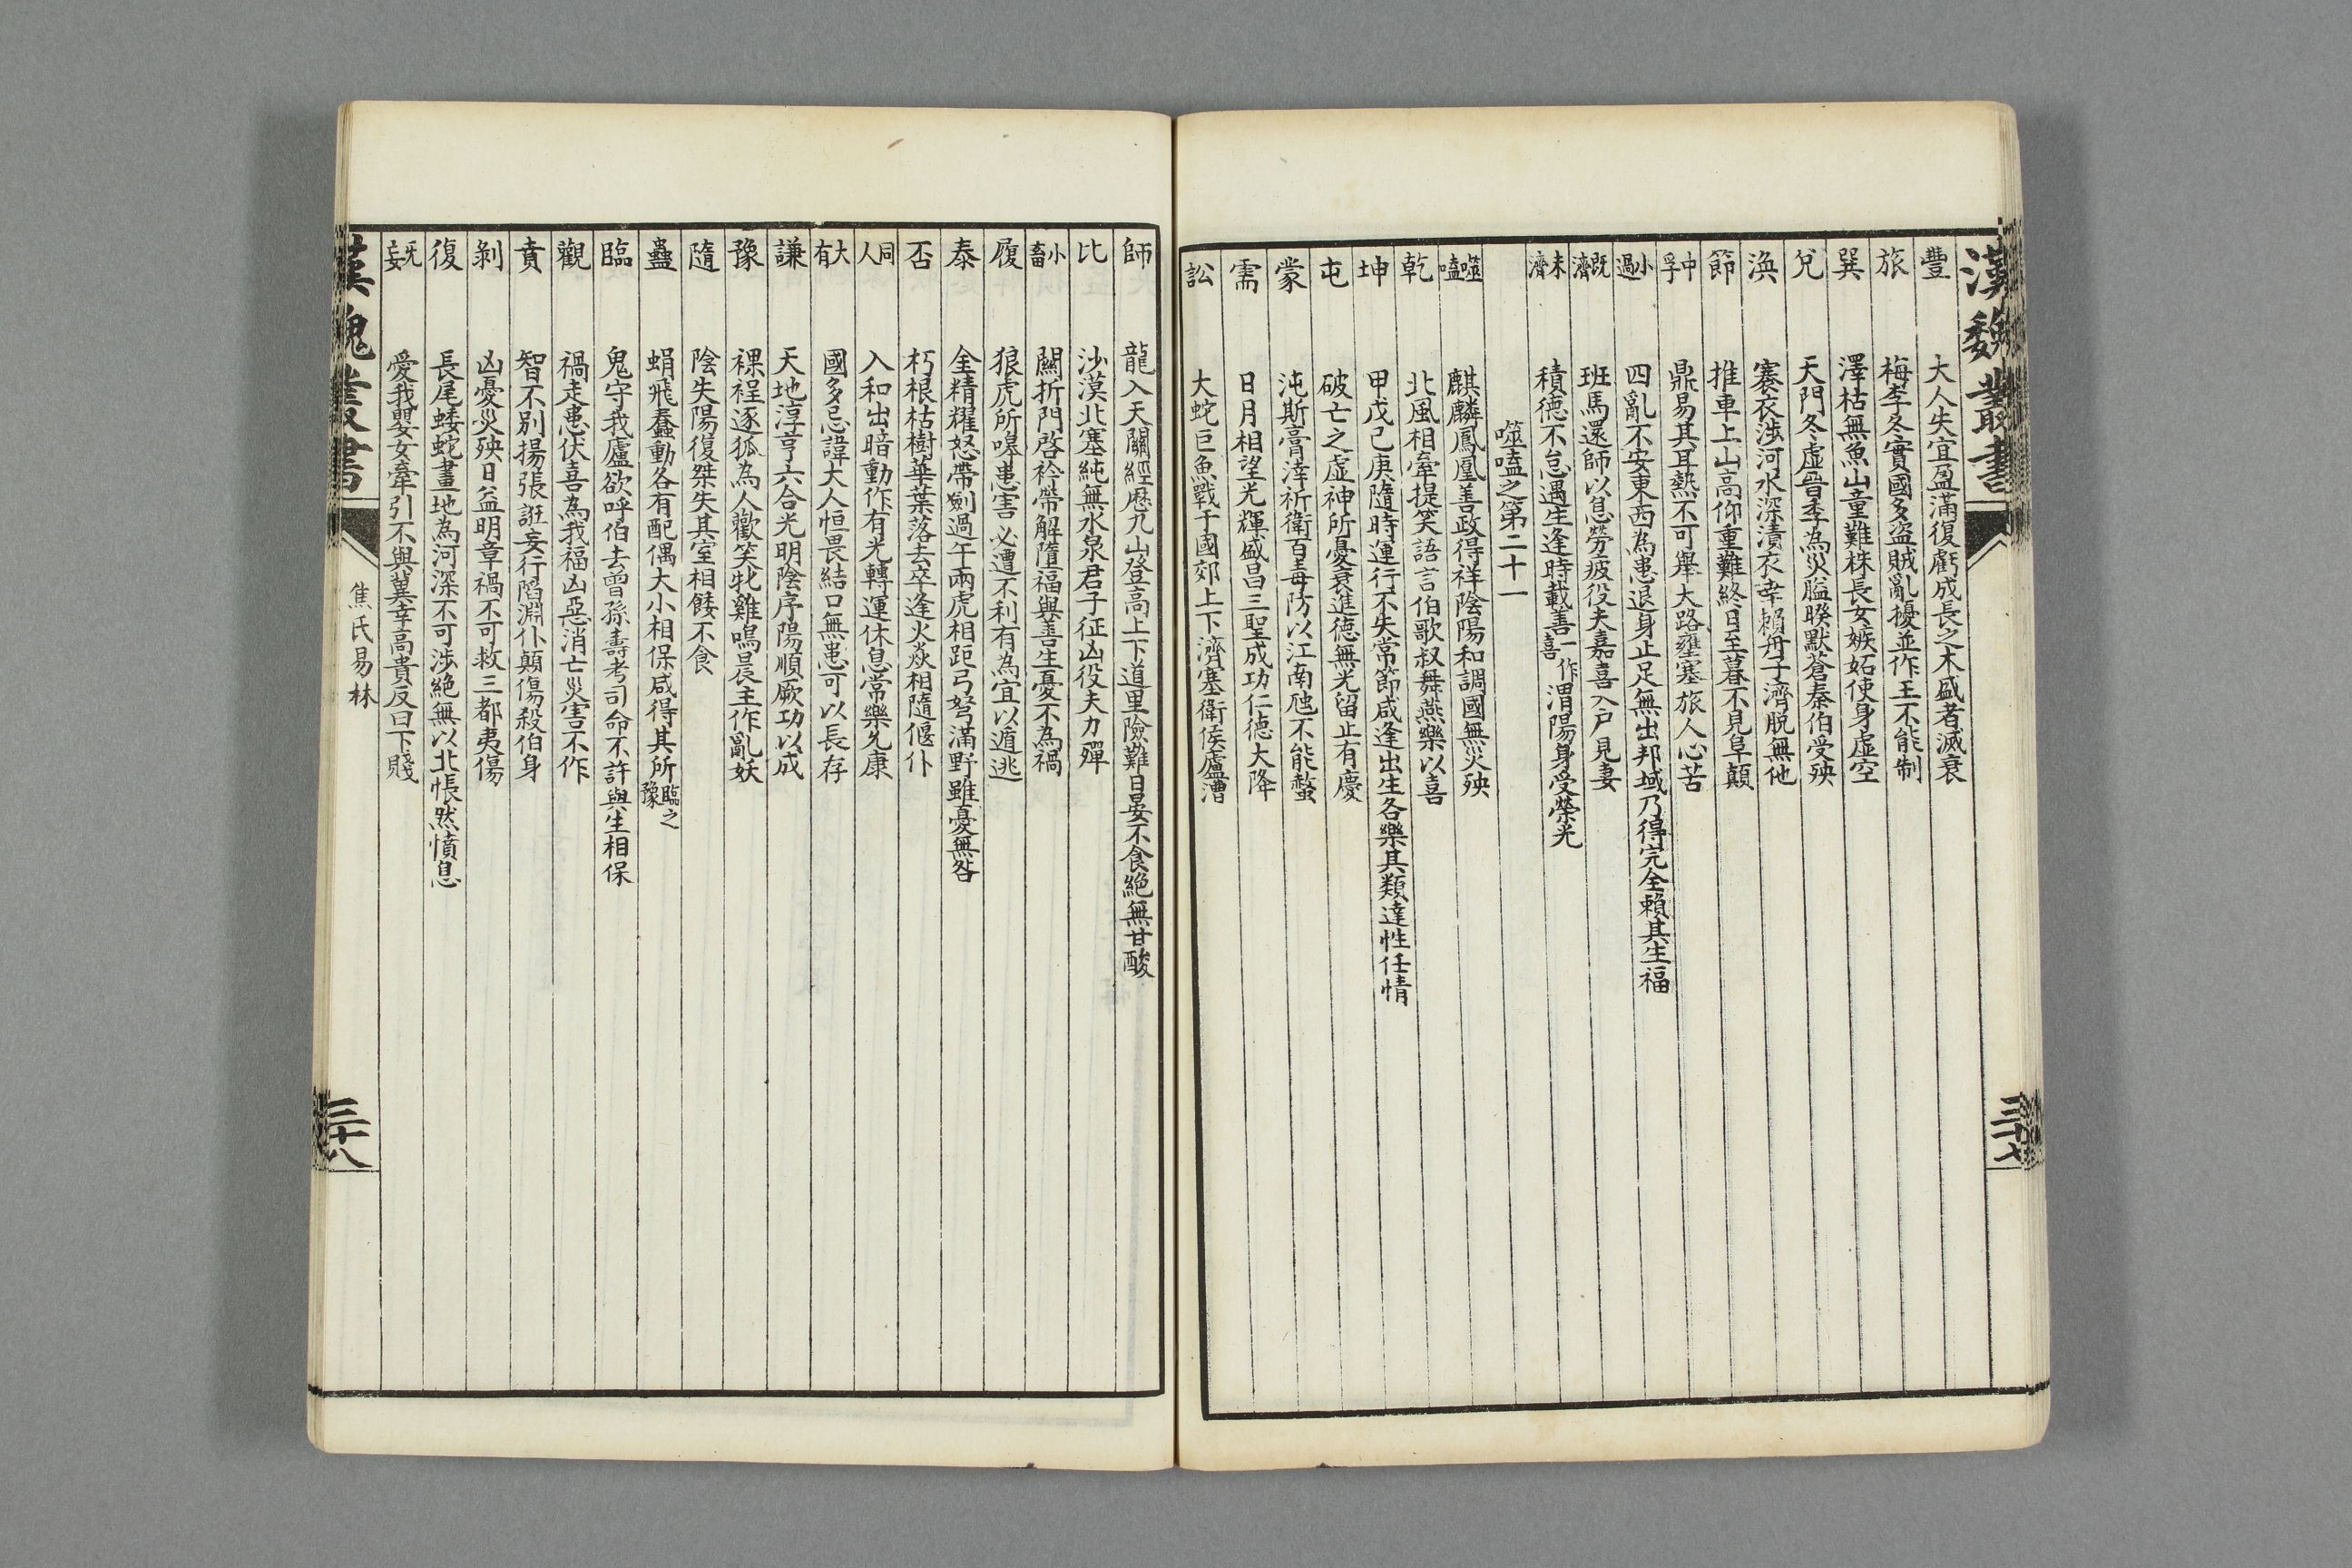 漢魏叢書
三十七
豐 大人失宜盈滿復虧成長之木盛者滅衰
旅 梅李冬實國多盜賊亂擾並作王不能制
巽 澤枯無魚山童難株長女嫉妬使身虛空
兌 天門冬虛晉季為災脇睽默蒼秦伯受殃
渙 褰衣涉河水深漬衣幸賴舟子濟脱無他
節 推車上山高仰重難終日至暮不見阜顛
中孚 鼎易其耳熱不可舉大路壅塞旅人心苦
小過 四亂不安東西為患退身止足無出邦域乃得完全賴其生福
既濟 班馬還師以息勞疲役夫嘉喜入戶見妻
未濟 積德不怠遇生逢時載善一作喜渭陽身受榮光
噬嗑之第二十一
噬嗑 麒麟鳳凰善政得祥陰陽和調國無災殃
乾 北風相牽提笑語言伯歌叔舞燕樂以喜
坤 甲戊己庚隨時運行不失常節咸逢出生各樂其類達性任情
屯 破亡之虛神所憂哀進德無光留止有慶
蒙 沌斯膏滓祈衛百毒防以江南虺不能螫
需 日月相望光輝盛昌三聖成功仁德大降
訟 大蛇巨魚戰于國郊上下濟塞衛侯廬漕
師 龍入天關經歷九山登高上下道里險難日晏不食絕無甘酸
比 沙漠北塞純無水泉君子征凶役夫力殫
小畜 關折門啓衿帶解墮福與善生憂不為禍
履 狼虎所嗥患害必遭不利有為宜以遁逃
泰 金精耀怒帶劍過午兩虎相距弓弩滿野雖憂無咎
否 朽根枯樹華葉落去卒逢火焱相隨偃仆
同人 入和出暗動作有光轉運休息常樂允康
大有 國多忌諱大人恒畏結口無患可以長存
謙 天地淳亨六合光明陰序陽順厥功以成
豫 裸裎逐狐為人歡笑牝雞鳴晨主作亂妖
隨 陰失陽復桀失其室相餧不食
蠱 蜎飛蠢動各有配偶大小相保咸得其所臨之豫
臨 鬼守我廬欲呼伯去曾孫壽考司命不許與生相保
觀 禍走患伏喜為我福凶惡消亡災害不作
賁 智不別揚張誑妄行陷淵仆顛傷殺伯身
剝 凶憂災殃日益明章禍不可救三都夷傷
復 長尾蜲蛇畫地為河深不可涉絕無以北悵然憤息
无妄 愛我嬰女牽引不與冀幸高貴反曰下賤
漢魏叢書
焦氏易林
三十八